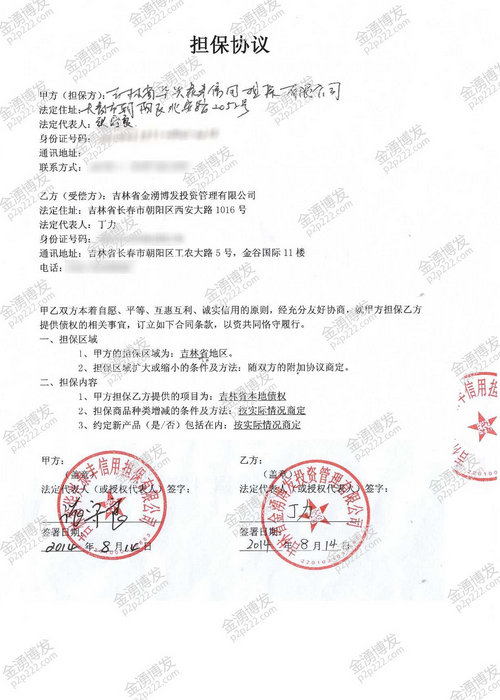 担保协议
甲方（担保方）：吉林省 信用担保有限公司
法定住址：长春市朝阳区 路2052号
法定代表人：
身份证号码：
通讯地址：
联系方式：
乙方（受偿方）：吉林省金湧博发投资管理有限公司
法定住址：吉林省长春市朝阳区西安大路 1016 号
法定代表人：丁力
身份证号码：
通讯地址：吉林省长春市朝阳区工农大路 5 号，金谷国际 11 楼
电话：
甲乙双方本着自愿、平等、互惠互利、诚实信用的原则，经充分友好协商，就甲方担保乙方
提供债权的相关事宜，订立如下合同条款，以资共同恪守履行。
一、担保区域
1、甲方的担保区域为：吉林省地区。
2、担保区域扩大或缩小的条件及方法：随双方的附加协议商定。
二、担保内容
1、甲方担保乙方提供的项目为：吉林省本地债权
2、担保商品种类增减的条件及方法：按实际情况商定
3、约定新产品（是/否）包括在内：按实际情况商定
甲方：
（盖章）
法定代表人（或授权代表人）签字：
签署日期：
2014 年 8 月 14 日
乙方：
（盖章）
法定代表人（或授权代表人）签字：
丁力
签署日期：
2014 年 8 月 14 日
丰信用担
吉林省金湧博发投资管理有限公司
金湧博发
p2p222.com